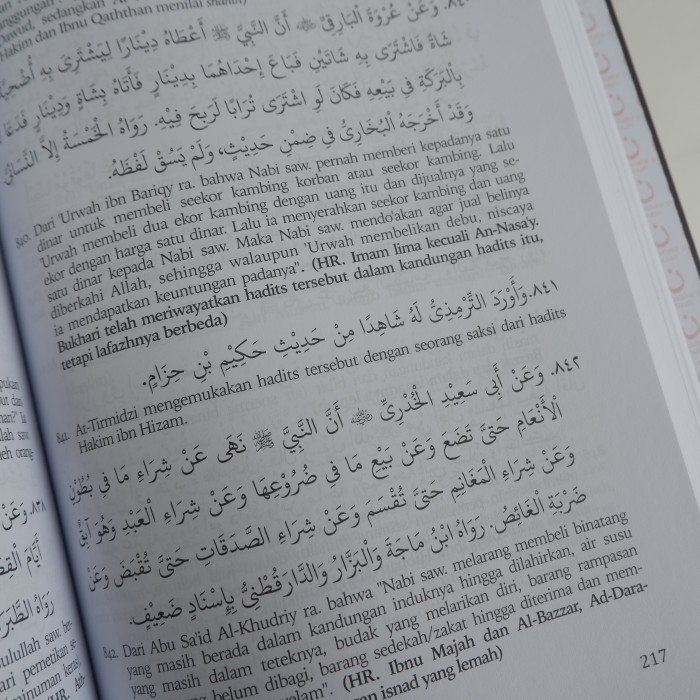 Dawud, sedangkan
Hakim dan Ibnu Qaththan menilai shahih
٨٤٠. وَعَنْ عُرْوَةَ الْبَارِقِيِّ ﷺ أَنَّ النَّبِيَّ ﷺ أَعْطَاهُ دِينَارًا لِيَشْتَرِيَ بِهِ أُضْحِيَّةً
شَاةً فَاشْتَرَى بِهِ شَاتَيْنِ فَبَاعَ إِحْدَاهُمَا بِدِينَارٍ فَأَتَاهُ بِشَاةٍ وَدِينَارٍ فَدَعَا
بِالْبَرَكَةِ فِي بَيْعِهِ فَكَانَ لَوْ اشْتَرَى تُرَابًا لَرَبِحَ فِيهِ. رَوَاهُ الْخَمْسَةُ إِلاَّ النَّسَائِيَّ
وَقَدْ أَخْرَجَهُ الْبُخَارِيُّ فِي ضِمْنِ حَدِيثٍ، وَلَمْ يَسُقْ لَفْظَهُ.
840. Dari 'Urwah ibn Bariqy ra. bahwa Nabi saw. pernah memberi kepadanya satu
dinar untuk membeli seekor kambing korban atau seekor kambing. Lalu
'Urwah membeli dua ekor kambing dengan uang itu dan dijualnya yang se-
ekor dengan harga satu dinar. Lalu ia menyerahkan seekor kambing dan uang
satu dinar kepada Nabi saw. Maka Nabi saw. mendo'akan agar jual belinya
diberkahi Allah, sehingga walaupun 'Urwah membelikan debu, niscaya
ia mendapatkan keuntungan padanya". (HR. Imam lima kecuali An-Nasa'y.
Bukhari telah meriwayatkan hadits tersebut dalam kandungan hadits itu,
tetapi lafazhnya berbeda)
٨٤١. وَأَوْرَدَ التِّرْمِذِيُّ لَهُ شَاهِدًا مِنْ حَدِيثِ حَكِيْمِ بْنِ حِزَامٍ.
841. At-Tirmidzi mengemukakan hadits tersebut dengan seorang saksi dari hadits
Hakim ibn Hizam.
٨٤٢. وَعَنْ أَبِي سَعِيْدٍ الْخُدْرِيِّ أَنَّ النَّبِيَّ ﷺ نَهَى عَنْ شِرَاءِ مَا فِي بُطُوْنِ
الْأَنْعَامِ حَتَّى تَضَعَ وَعَنْ بَيْعِ مَا فِي ضُرُوْعِهَا وَعَنْ شِرَاءِ الْعَبْدِ وَهُوَ آبِقٌ
وَعَنْ شِرَاءِ الْمَغَانِمِ حَتَّى تُقْسَمَ وَعَنْ شِرَاءِ الصَّدَقَاتِ حَتَّى تُقْبَضَ وَعَنْ
ضَرْبَةِ الْغَائِصِ. رَوَاهُ ابْنُ مَاجَةَ وَالْبَزَّارُ وَالدَّارَقُطْنِيُّ بِإِسْنَادٍ ضَعِيْفٍ.
842. Dari Abu Sa'id Al-Khudriy ra. bahwa "Nabi saw. melarang membeli binatang
yang masih berada dalam kandungan induknya hingga dilahirkan, air susu
yang masih dalam teteknya, budak yang melarikan diri, barang rampasan
belum dibagi, barang sedekah/zakat hingga diterima dan mem-
(HR. Ibnu Majah dan Al-Bazzar, Ad-Dara-
isnad yang lemah)
217